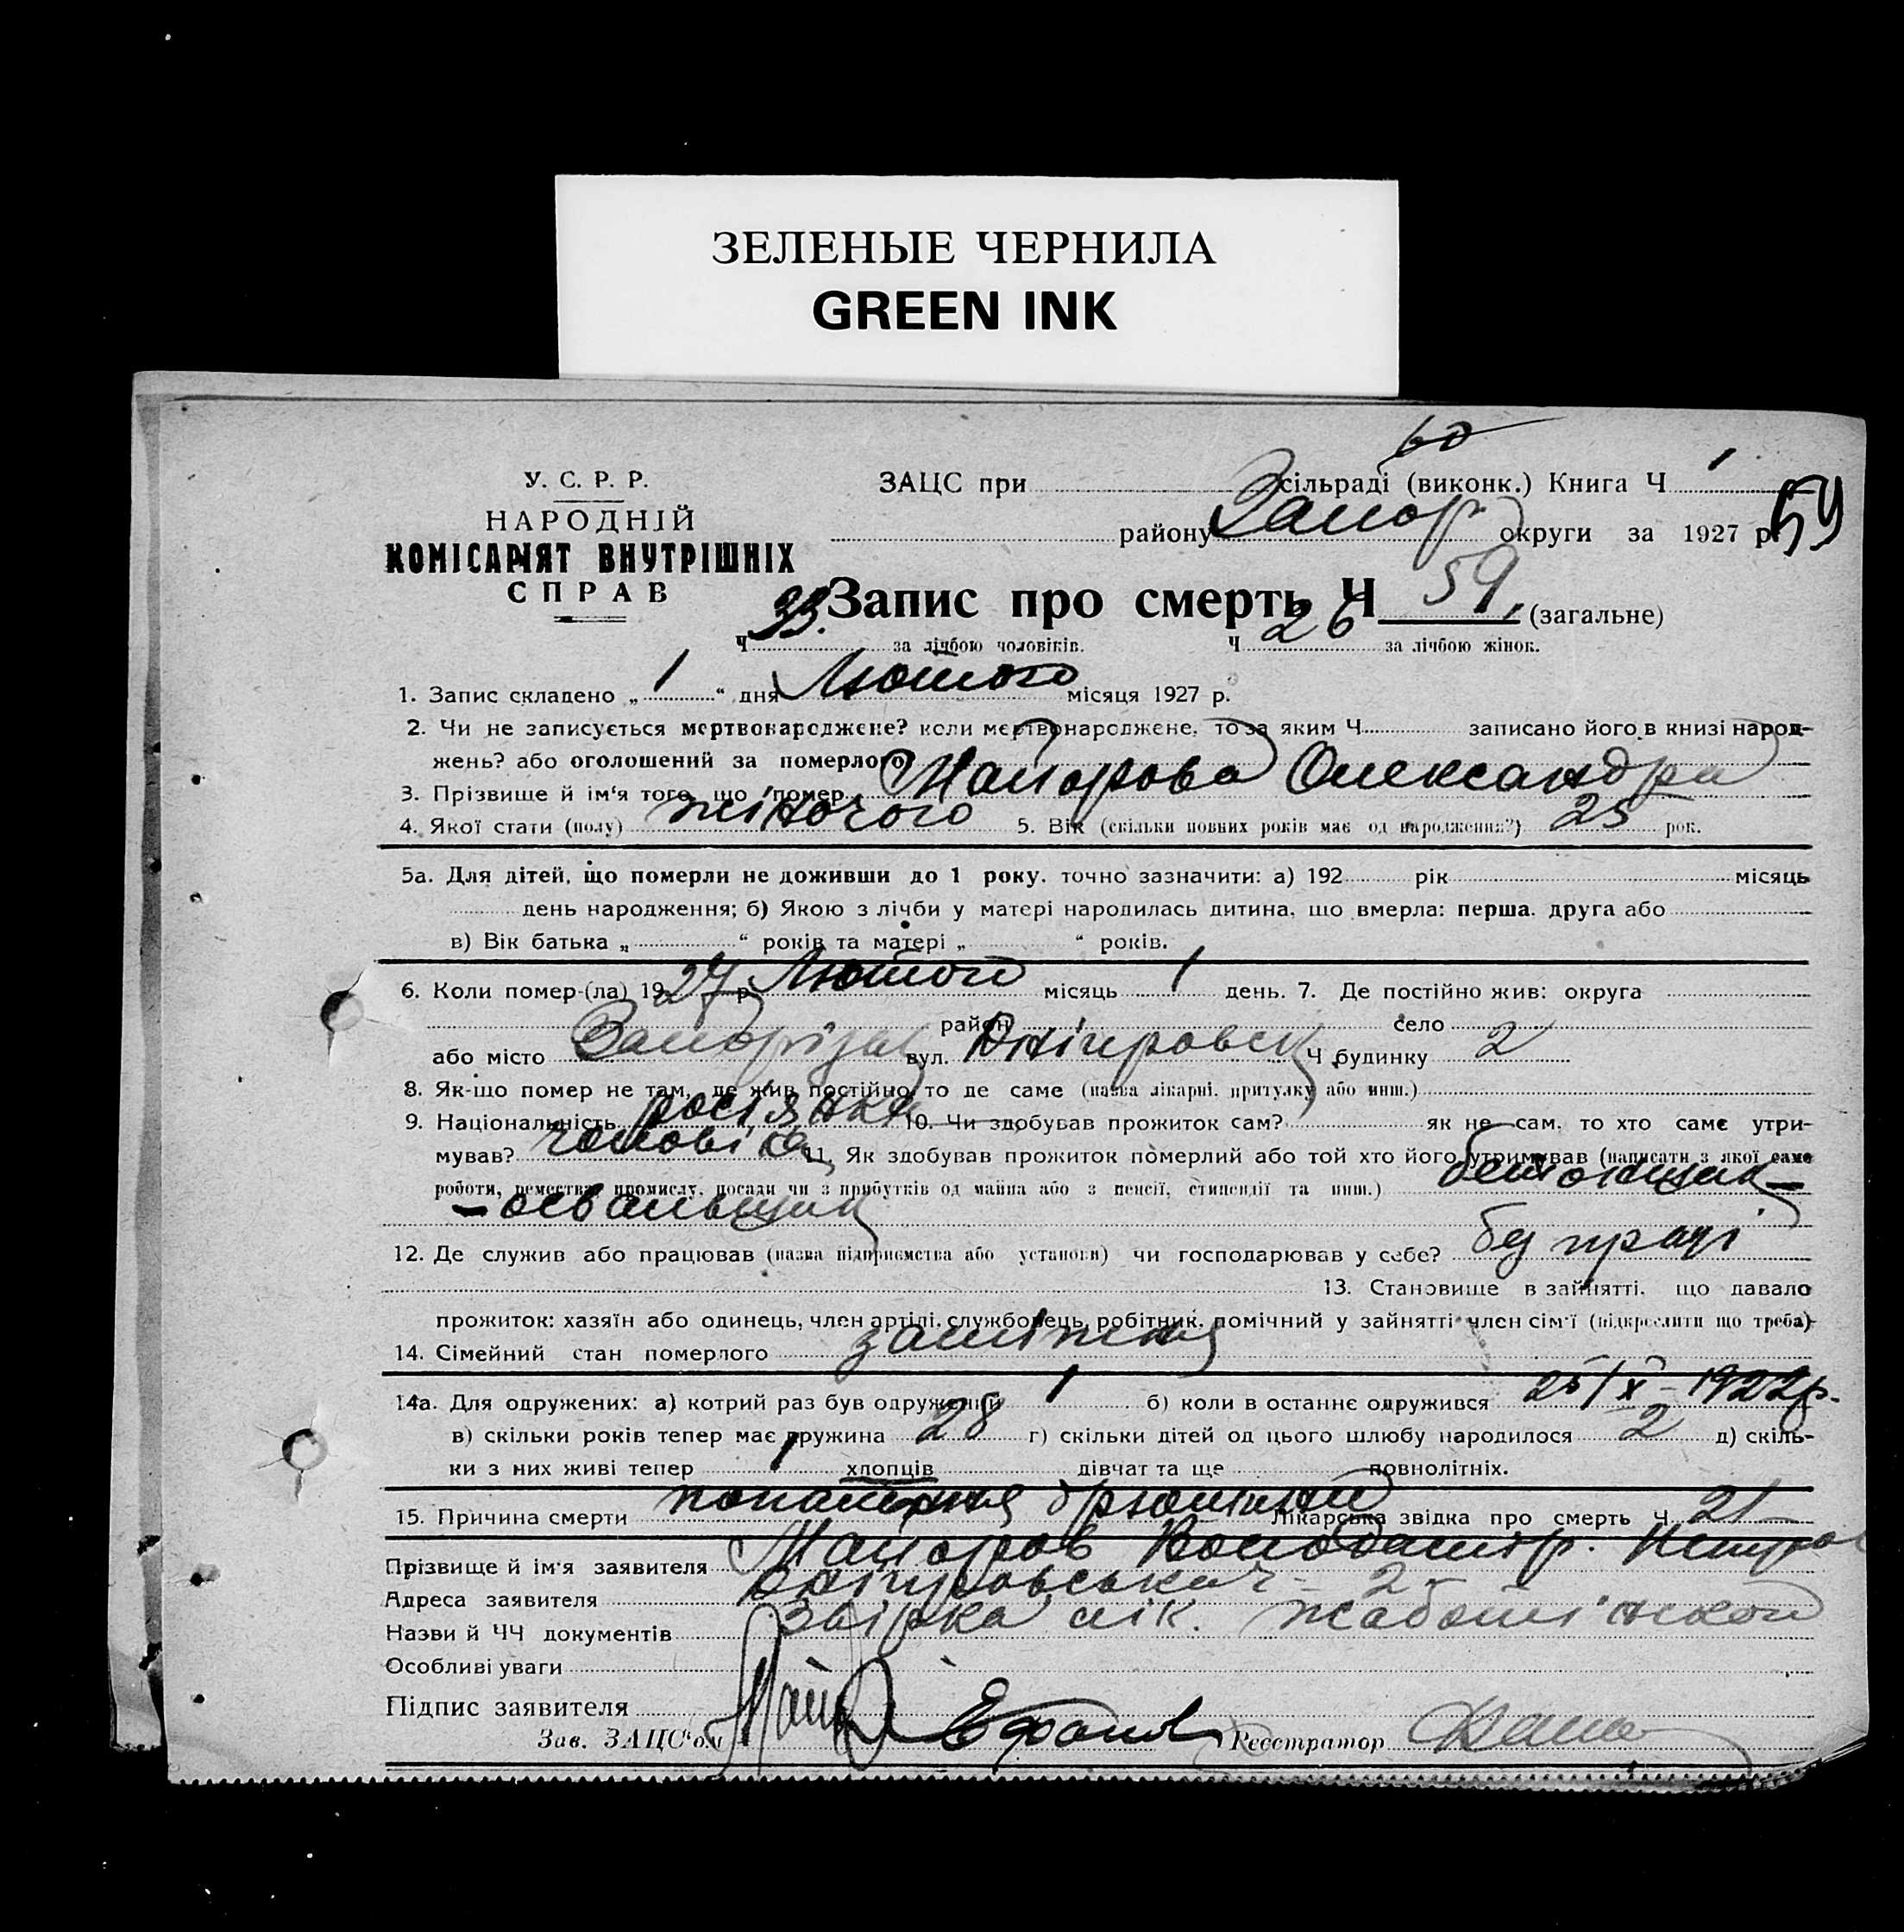 ЗЕЛЕНЫЕ ЧЕРНИЛА
GREEN INK
60
У. С. Р. Р.
НАРОДНІЙ
КОМІСАРІЯТ ВНУТРІШНІХ
СПРАВ
ЗАЦС при сільраді (виконк.) Книга Ч 1
району Запор округи за 1927 р. 59
Запис про смерть Ч 59, (загальне)
Ч 33. за лічбою чоловіків. Ч 26 за лічбою жінок.
1. Запис складено „ 1 “ дня Лютого місяця 1927 р.
2. Чи не записується мертвонароджене? коли мертвонароджене, то за яким Ч записано його в книзі народ-
жень? або оголошений за померлого?
3. Прізвище й ім‘я того, що помер. Майорова Олександра
4. Якої стати (полу) жіночого 5. Вік (скільки повних років має од народження?) 25 рок.
5а. Для дітей, що померли не доживши до 1 року, точно зазначити: а) 192 рік місяць
день народження; б) Якою з лічби у матері народилась дитина, що вмерла: перша, друга або
в) Вік батька „ “ років та матері „ “ років.
6. Коли помер-(ла) 1927 р. Лютого місяць 1 день. 7. Де постійно жив: округа
район село
або місто Запоріжжя вул. Дніпровськ Ч будинку 2
8. Як-що помер не там, де жив постійно, то де саме (назва лікарні, притулку або инш.)
9. Національність росіянка 10. Чи здобував прожиток сам? як не сам, то хто саме утри-
мував? чоловік 11. Як здобував прожиток померлий або той хто його утримував (написати з якої саме
роботи, ремества, промислу, посади чи з прибутків од майна або з пенсії, стипендії та инш.) бетонщик-
-освальщик
12. Де служив або працював (назва підприємства або установи) чи господарював у себе? без праці
13. Становище в зайнятті, що давало
прожиток: хазяїн або одинець, член артілі, службовець, робітник, помічний у зайнятті член сім‘ї (підкреслити що треба)
14. Сімейний стан померлого заміжня
14а. Для одружених: а) котрий раз був одружений 1 б) коли в останнє одружився 25/X-1922р.
в) скільки років тепер має дружина 28 г) скільки дітей од цього шлюбу народилося 2 д) скіль-
ки з них живі тепер 1 хлопців дівчат та ще повнолітніх.
15. Причина смерти Лікарська звідка про смерть Ч 21
Прізвище й ім‘я заявителя Майоров Володимір.
Адреса заявителя Дніпровська ч- 2-
Назви й ЧЧ документів Звірка лік. Жаботінской
Особливі уваги
Підпис заявителя
Зав. ЗАЦС‘ом Реєстратор